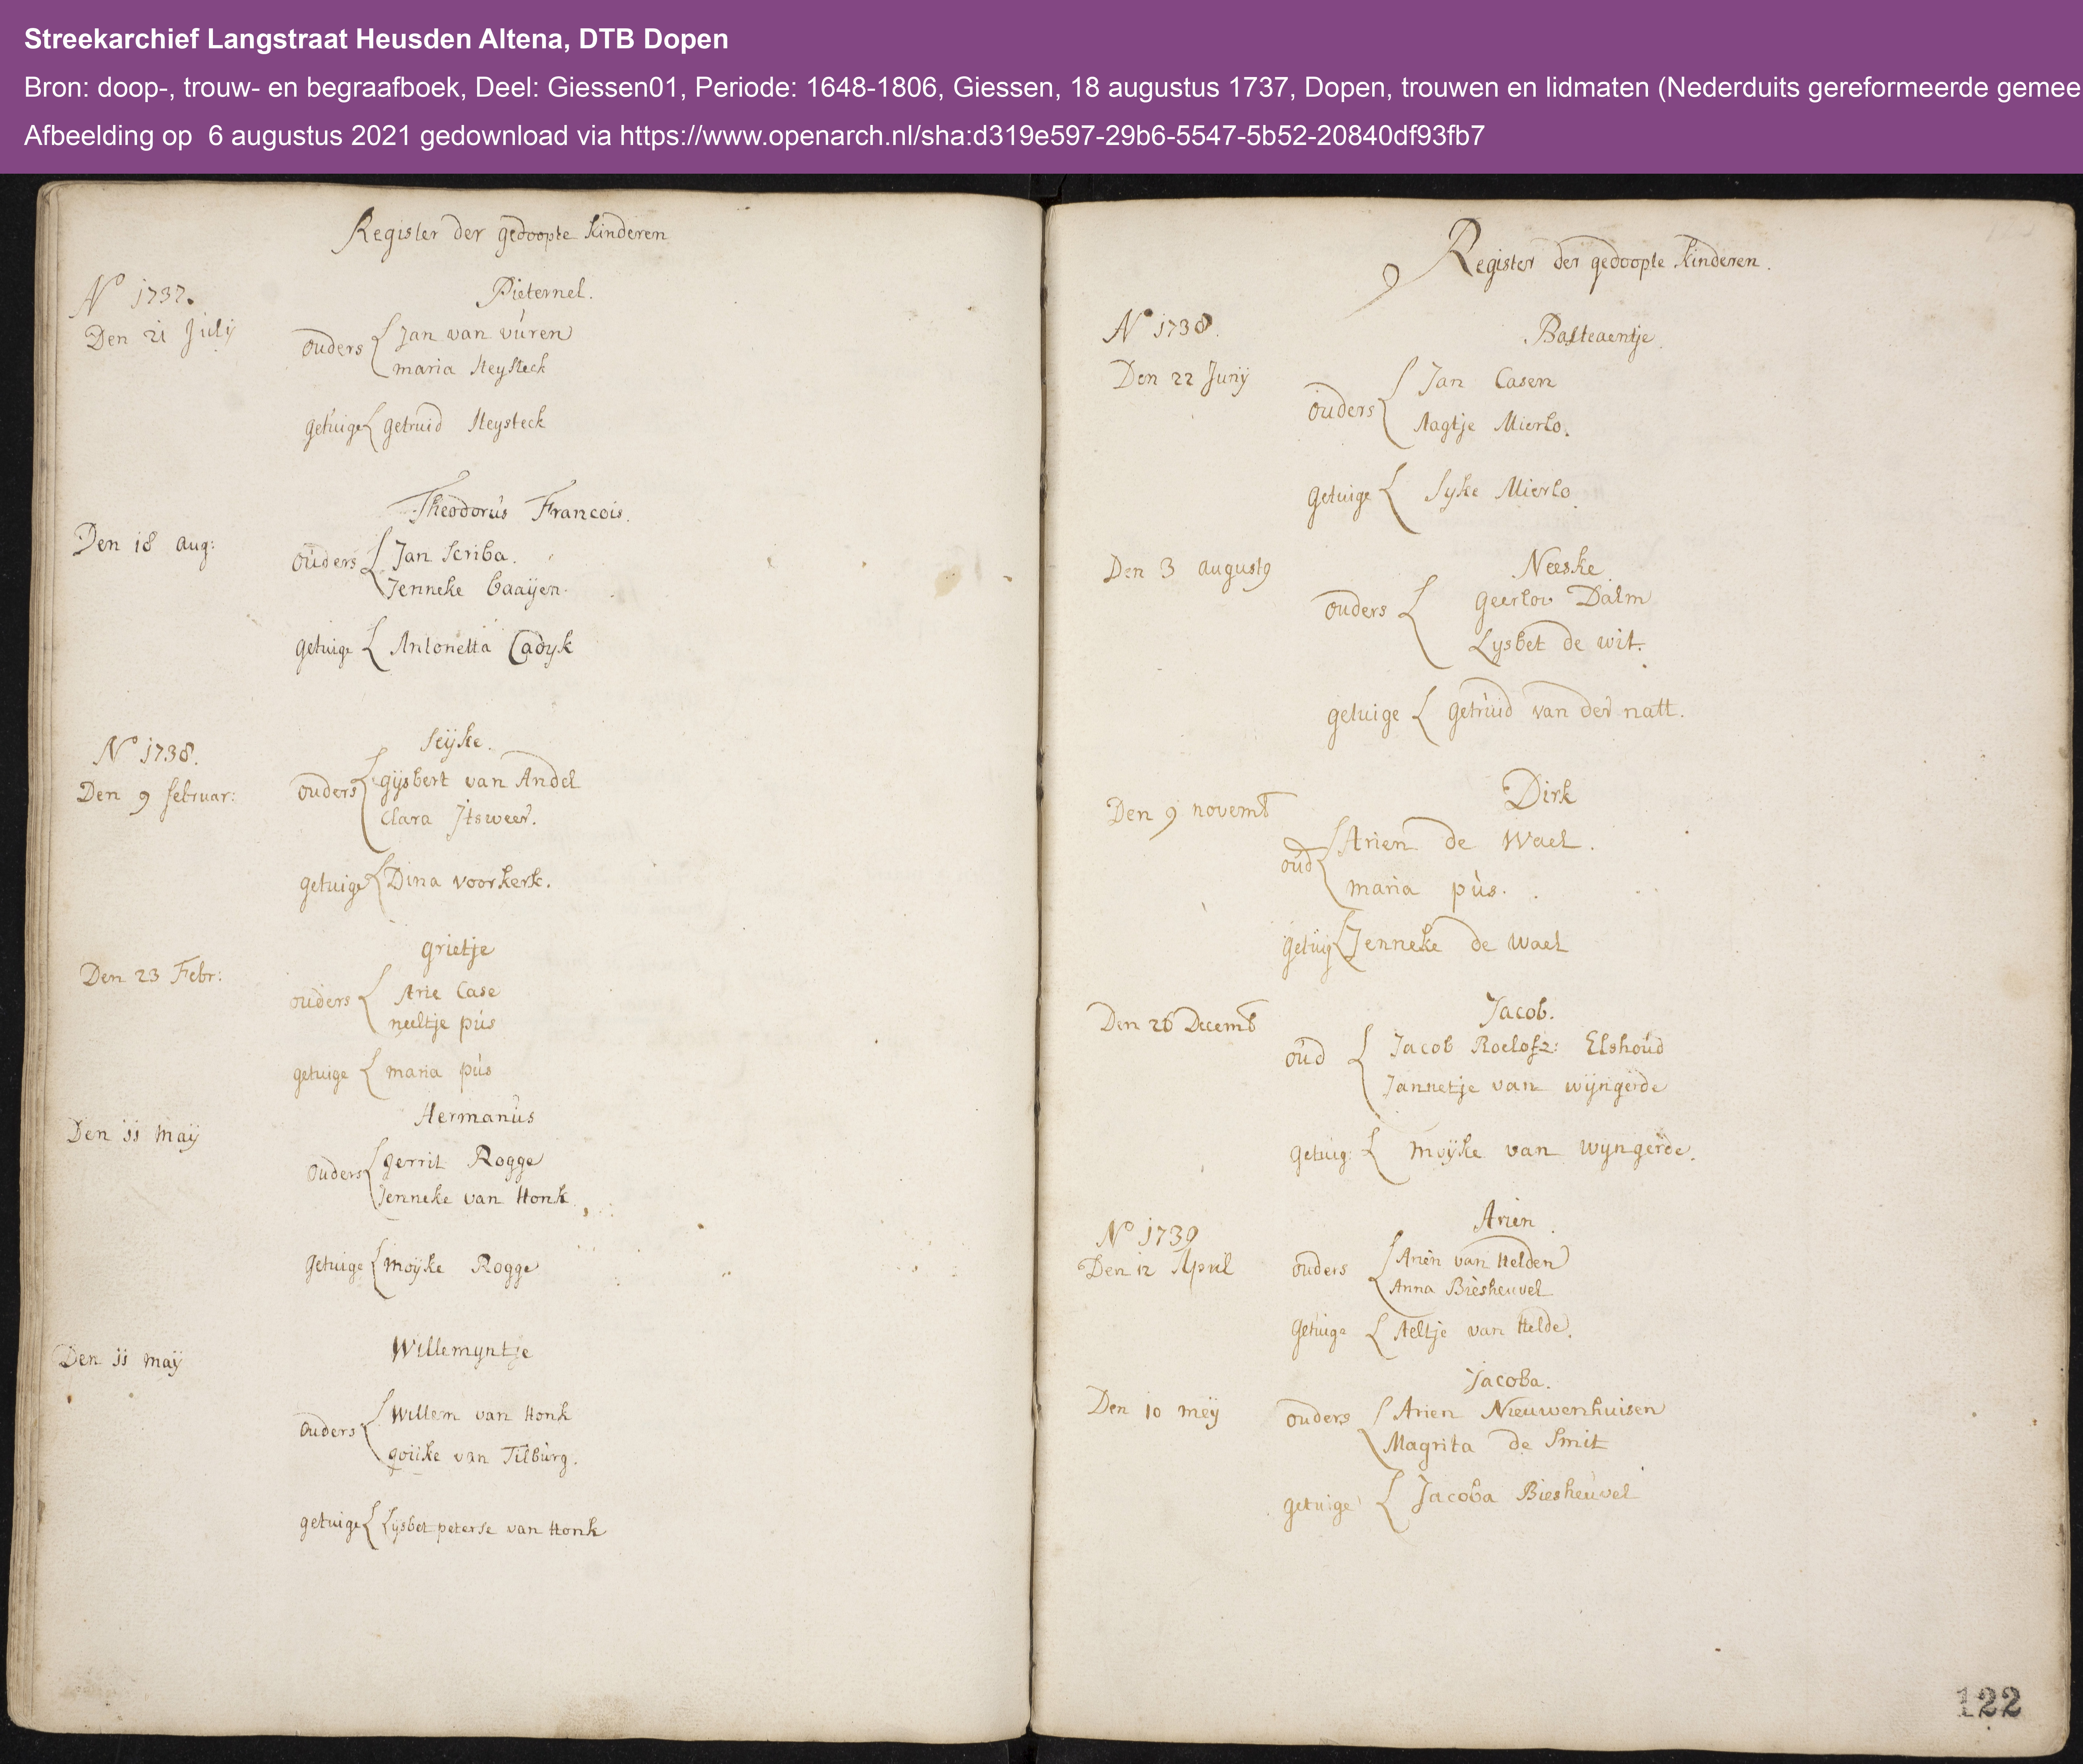 Streekarchief Langstraat Heusden Altena, DTB Dopen
Bron: doop-, trouw- en begraafboek, Deel: Giessen01, Periode: 1648-1806, Giessen, 18 augustus 1737, Dopen, trouwen en lidmaten (Nederduits gereformeerde gemee
Afbeelding op 6 augustus 2021 gedownload via https://www.openarch.nl/sha:d319e597-29b6-5547-5b52-20840df93fb7
Register der gedoopte kinderen
No 1737.
Pieternel.
Den 21 Julij
ouders Jan van vuren
maria Heysteck
getuige getruid Heysteck
Theodorus Francois.
Den 18 aug:
ouders Jan Scriba.
Jenneke baaijen.
getuige Antonetta Cadyk
No 1738.
Seijke.
Den 9 februar:
ouders gijsbert van Andel
Clara Itsweer.
getuige Dina voorkerk.
grietje
Den 23 Febr:
ouders Arie Case
neeltje pus
getuige maria pus
Hermanus
Den 11 maij
ouders gerrit Rogge
Jenneke van Honk
getuige moijke Rogge
Willemyntje
Den 11 maij
ouders Willem van Honk
goiike van Tilburg.
getuige Lijsbet peterse van Honk
Register der gedoopte kinderen.
No 1738.
Basteaentje.
Den 22 Junij
ouders Jan Casen
Aagtje Mierlo.
getuige Syke Mierlo.
Den 3 augusty
Neeske
ouders geerlov Dalm
Lysbet de wit.
getuige getruid van der natt.
Dirk
Den 9 novemb
oud Arien de Wael.
maria pus.
getuig Jenneke de Wael
Jacob.
Den 26 Decemb
oud Jacob Roelofz: Elshoud
Jannetje van wijngerde
getuig: moijke van wyngerde.
Arien.
No 1739
Den 12 April
ouders Arien van Helden
Anna Biesheuvel
getuige Aeltje van Helde.
Jacoba.
Den 10 meij
ouders Arien Nieuwenhuisen
Magrita de Smit
getuige Jacoba Biesheuvel
122